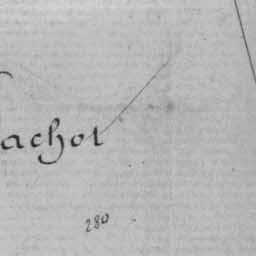 achot
280